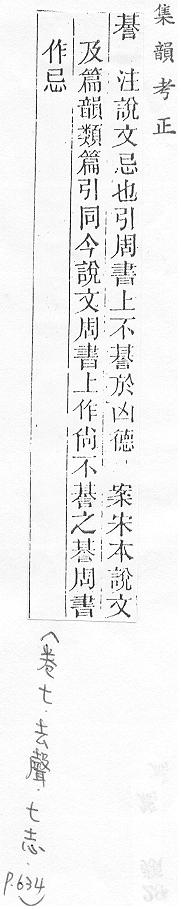 集韻考正
諅 注說文忌也引周書上不諅於凶德 案宋本說文
及篇韻類篇引同今說文周書上作尙不諅之諅周書
作忌
(卷七.去聲.七志.
P.634)